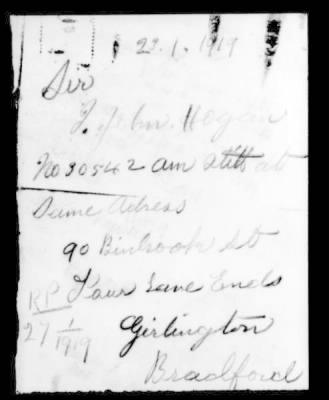 22.1.1919
Sir
I. John. Hogan
No 30542 am still at
Same Adress
90 Binbrook St
Four Lane Ends
Girlington
Bradford
RP
27 1/1919